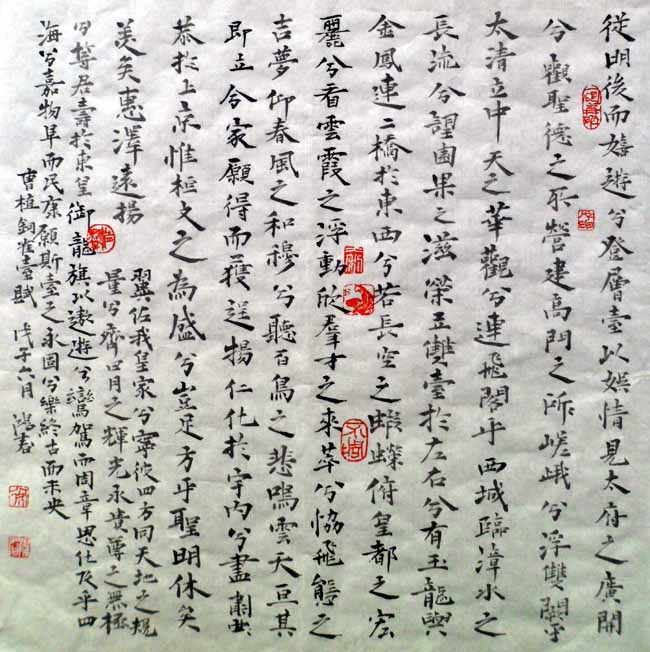 從明後而嬉遊兮登層臺以娛情見太府之廣開
兮觀聖德之所營建高門之所嵯峨兮浮雙闕乎
太清立中天之華觀兮連飛閣乎西城臨漳水之
長流兮望園果之滋榮立雙臺於左右兮有玉龍與
金鳳連二橋於東西兮若長空之俯皇都之宏
麗兮看雲霞之浮動欣羣才之來萃兮協飛態之
吉夢仰春風之和穆兮聽百鳥之悲鳴雲天亘其
即立兮家願得而獲逞揚仁化於宇內兮盡肅
恭於上京惟桓文之為盛兮豈足方乎聖明休矣
美矣惠澤遠揚
翼佐我皇家兮寧彼四方同天地之規
量兮齊日月之輝光永貴尊之無極
兮等君壽於東皇御龍旂以遨遊兮鸞駕而周章恩化及乎四
海兮嘉物阜而民康願斯臺之永固兮樂終古而未央
曹植銅雀臺賦 戊子六月